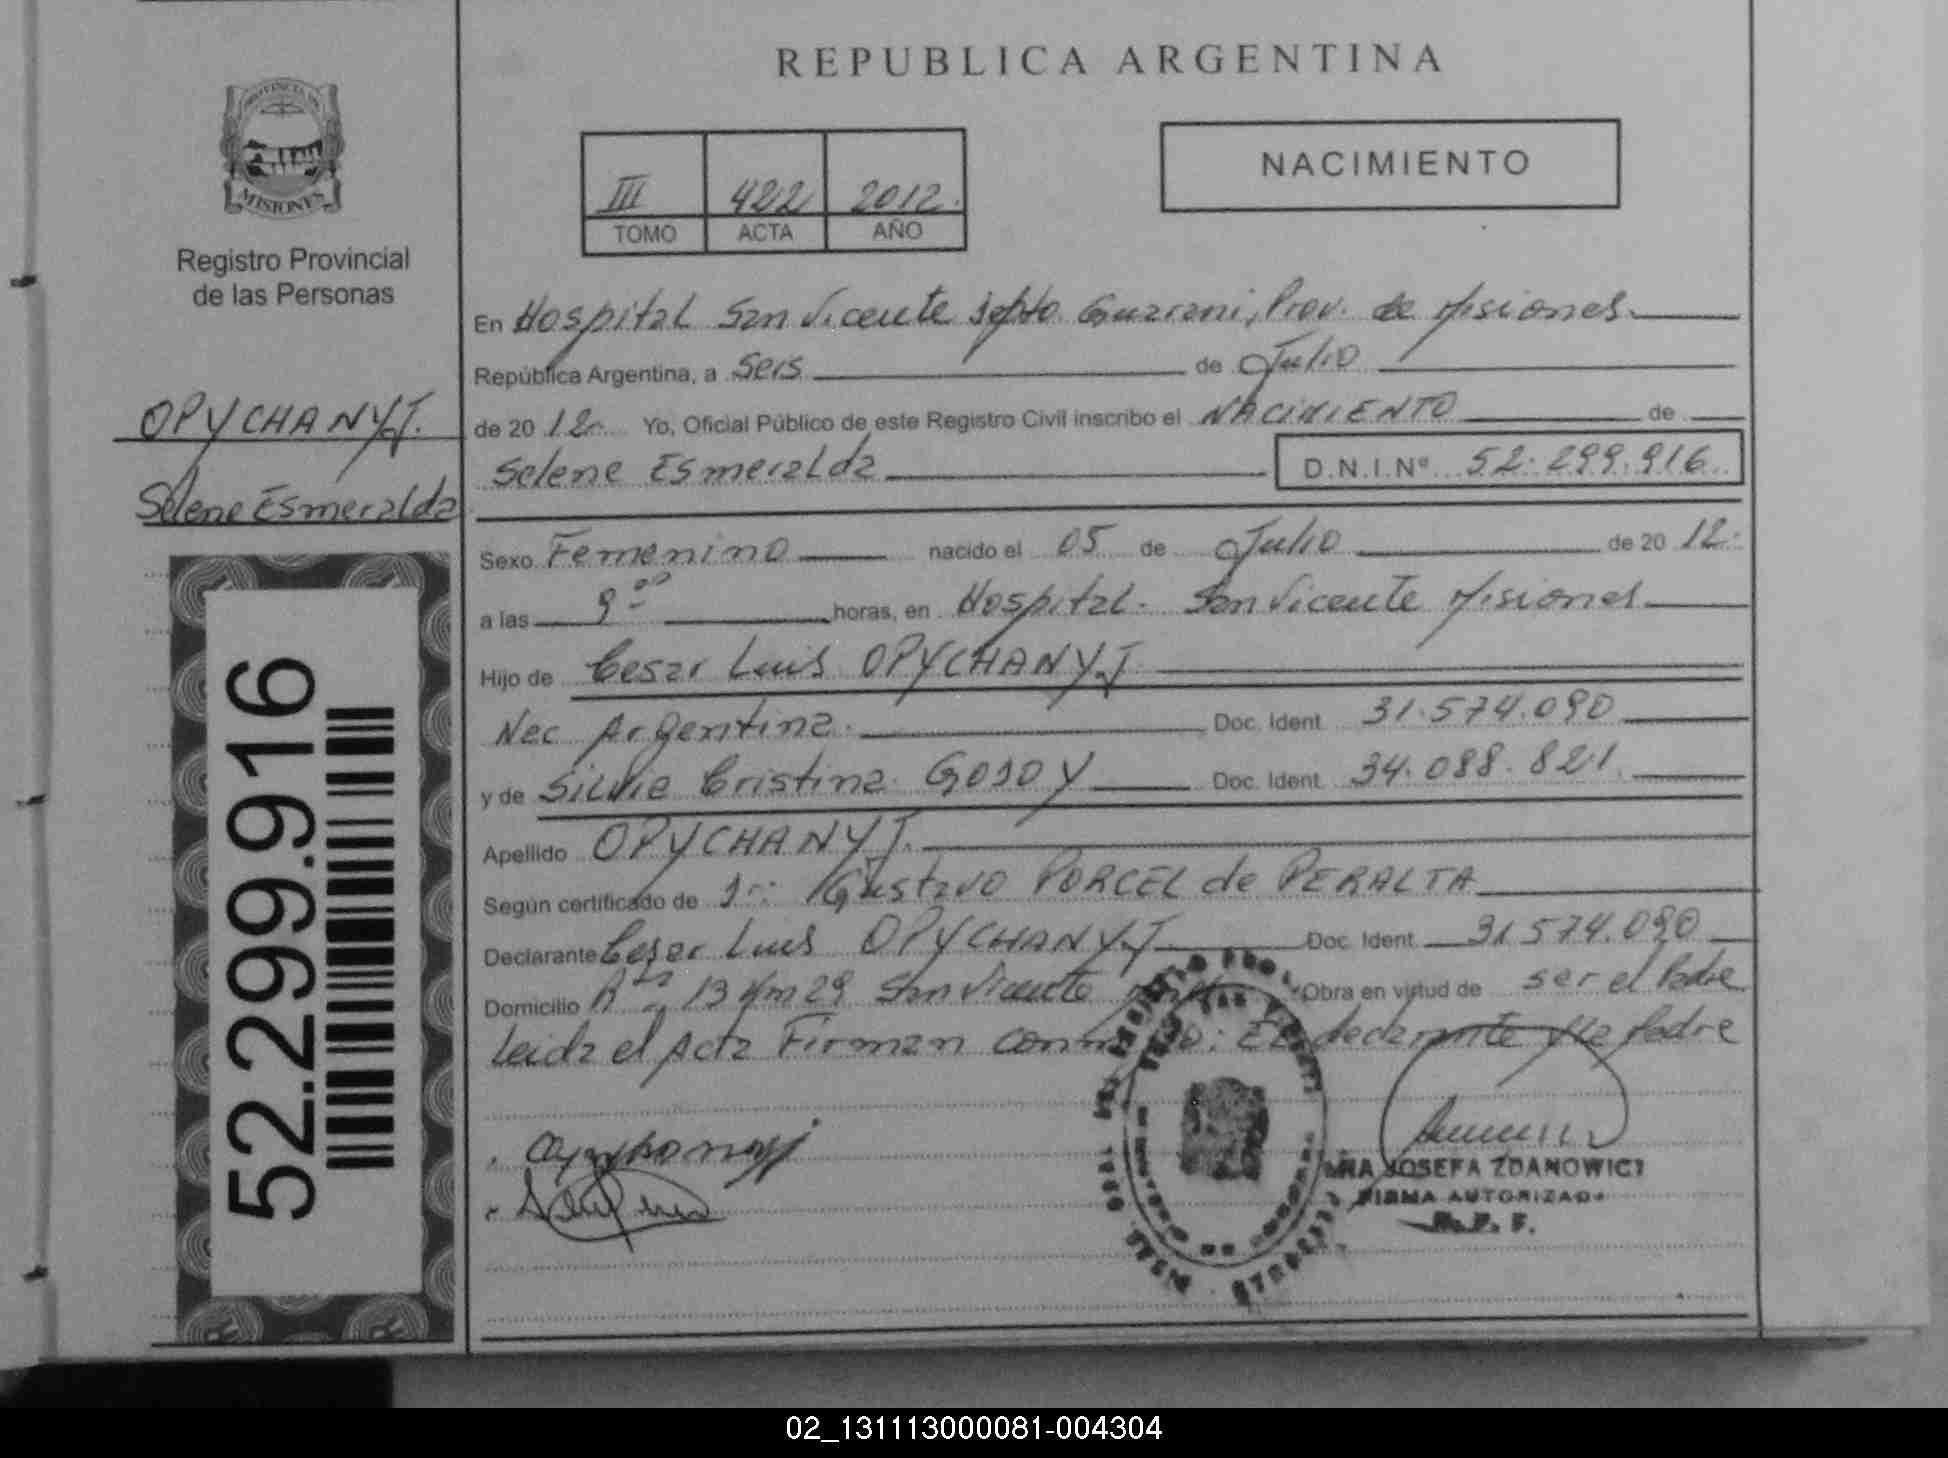 REPUBLICA ARGENTINA
PROVINCIA DE
MISIONES
Registro Provincial
de las Personas
NACIMIENTO
III 422 2012.
TOMO ACTA AÑO
OPYCHANYJ.
Selene Esmeralda
52.299.916
En Hospital San Vicente Depto Guarani, Prov. de Misiones.
República Argentina, a Seis de Julio
de 20 12. Yo, Oficial Público de este Registro Civil inscribo el NACIMIENTO de
Selene Esmeralda D.N.I.Nº 52.299.916
Sexo Femenino nacido el 05 de Julio de 20 12.
a las 9 00 horas, en Hospital. San Vicente Misiones
Hijo de Cesar Luis OPYCHANYJ
Nac Argentina. Doc. Ident. 31.574.090
y de Silvia Cristina GODOY Doc. Ident. 34.088.821
Apellido OPYCHANYJ.
Según certificado de Gustavo PORCEL de PERALTA
Declarante Cesar Luis OPYCHANYJ Doc. Ident. 31.574.090
Domicilio 13 Km 29 San Vicente Obra en virtud de ser el Padre
Leida el Acta Firman El declarante y la Padre
JOSEFA ZDANOWICZ
FIRMA AUTORIZADA
R. P. F.
02_131113000081-004304